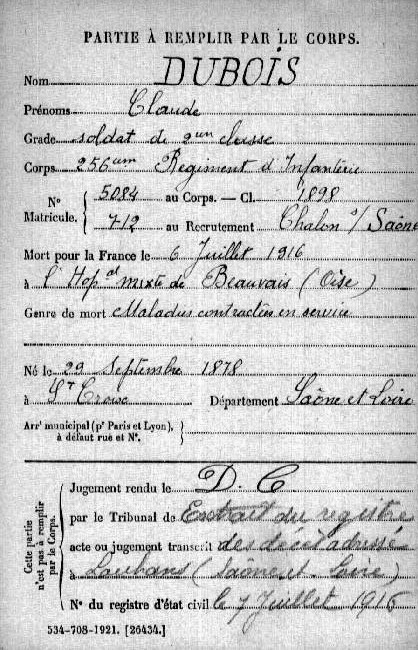 PARTIE À REMPLIR PAR LE CORPS.
Nom DUBOIS
Prénoms Claude
Grade soldat de 2eme classe
Corps 256eme Régiment d'Infanterie
N° Matricule. { 5084 au Corps. — Cl. 1898
712 au Recrutement Chalon s/ Saône
Mort pour la France le 6 Juillet 1916
à l'Hop al mixte de Beauvais (Oise)
Genre de mort Maladies contractées en service
Né le 29 Septembre 1878
à St Croix Département Saône et Loire
Arr' municipal (p' Paris et Lyon), à défaut rue et N°. }
Cette partie n'est pas à remplir par le Corps.
Jugement rendu le D. C
par le Tribunal de Extrait du registre
acte ou jugement transcrit des décès adressé
à Louhans (Saône et Loire)
N° du registre d'état civil le 7 Juillet 1916
534-708-1921. [26434.]